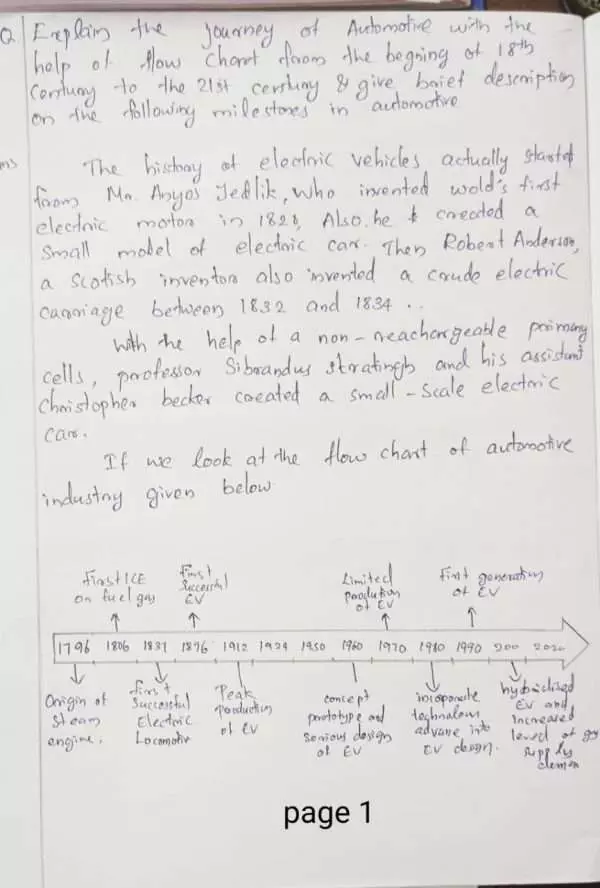 Q Explain the journey of Automotive with the
help of flow Chart from the begning of 18th
Century to the 21st century & give brief description
on the following milestones in automotive
ns
The history of electric vehicles actually started
from Mr. Anyos Jedlik, who invented wold's first
electric motor in 1828, Also he created a
small model of electric car. Then Robert Anderson,
a Scotish inventor also invented a crude electric
carriage between 1832 and 1834 ..
With the help of a non-reachargeable primary
cells, professor Sibrandus stratingh and his assistant
Christopher becker created a small-scale electric
car.
If we look at the flow chart of automotive
industry given below
First ICE
on fuel gas
First
Successful
EV
Limited
production
of EV
First generation
of EV
1796 1806 1837 1896 1912 1924 1950 1960 1970 1980 1990 200 2020
Origin of
Steam
engine.
first
Successful
Electric
Locomotiv
Peak
production
of EV
concept
prototype and
Serious design
of EV
incoporate
technology
advane into
EV design.
hybridized
EV and
increased
level of
supply
page 1